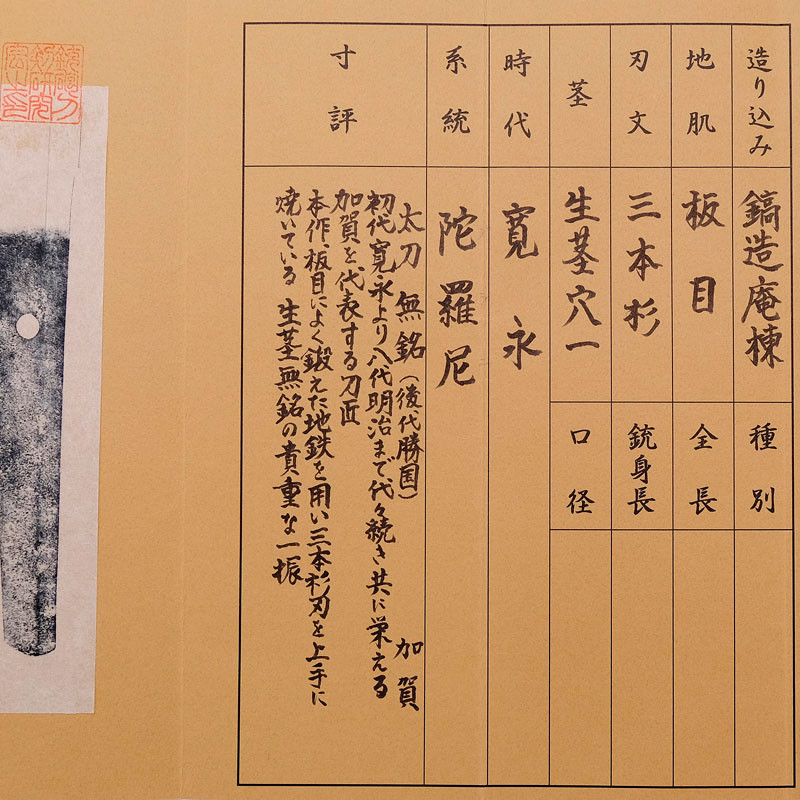 造り込み
鎬造庵棟
種別
地肌
板目
全長
刃文
三本杉
銃身長
茎
生茎穴一
口径
時代
寛永
系統
陀羅尼
寸評
太刀 無銘(後代勝国) 加賀
初代寛永より八代明治まで代々続き共に栄える
加賀を代表する刀匠
本作、板目によく鍛えた地鉄を用い三本杉刃を上手に
焼いている 生茎無銘の貴重な一振